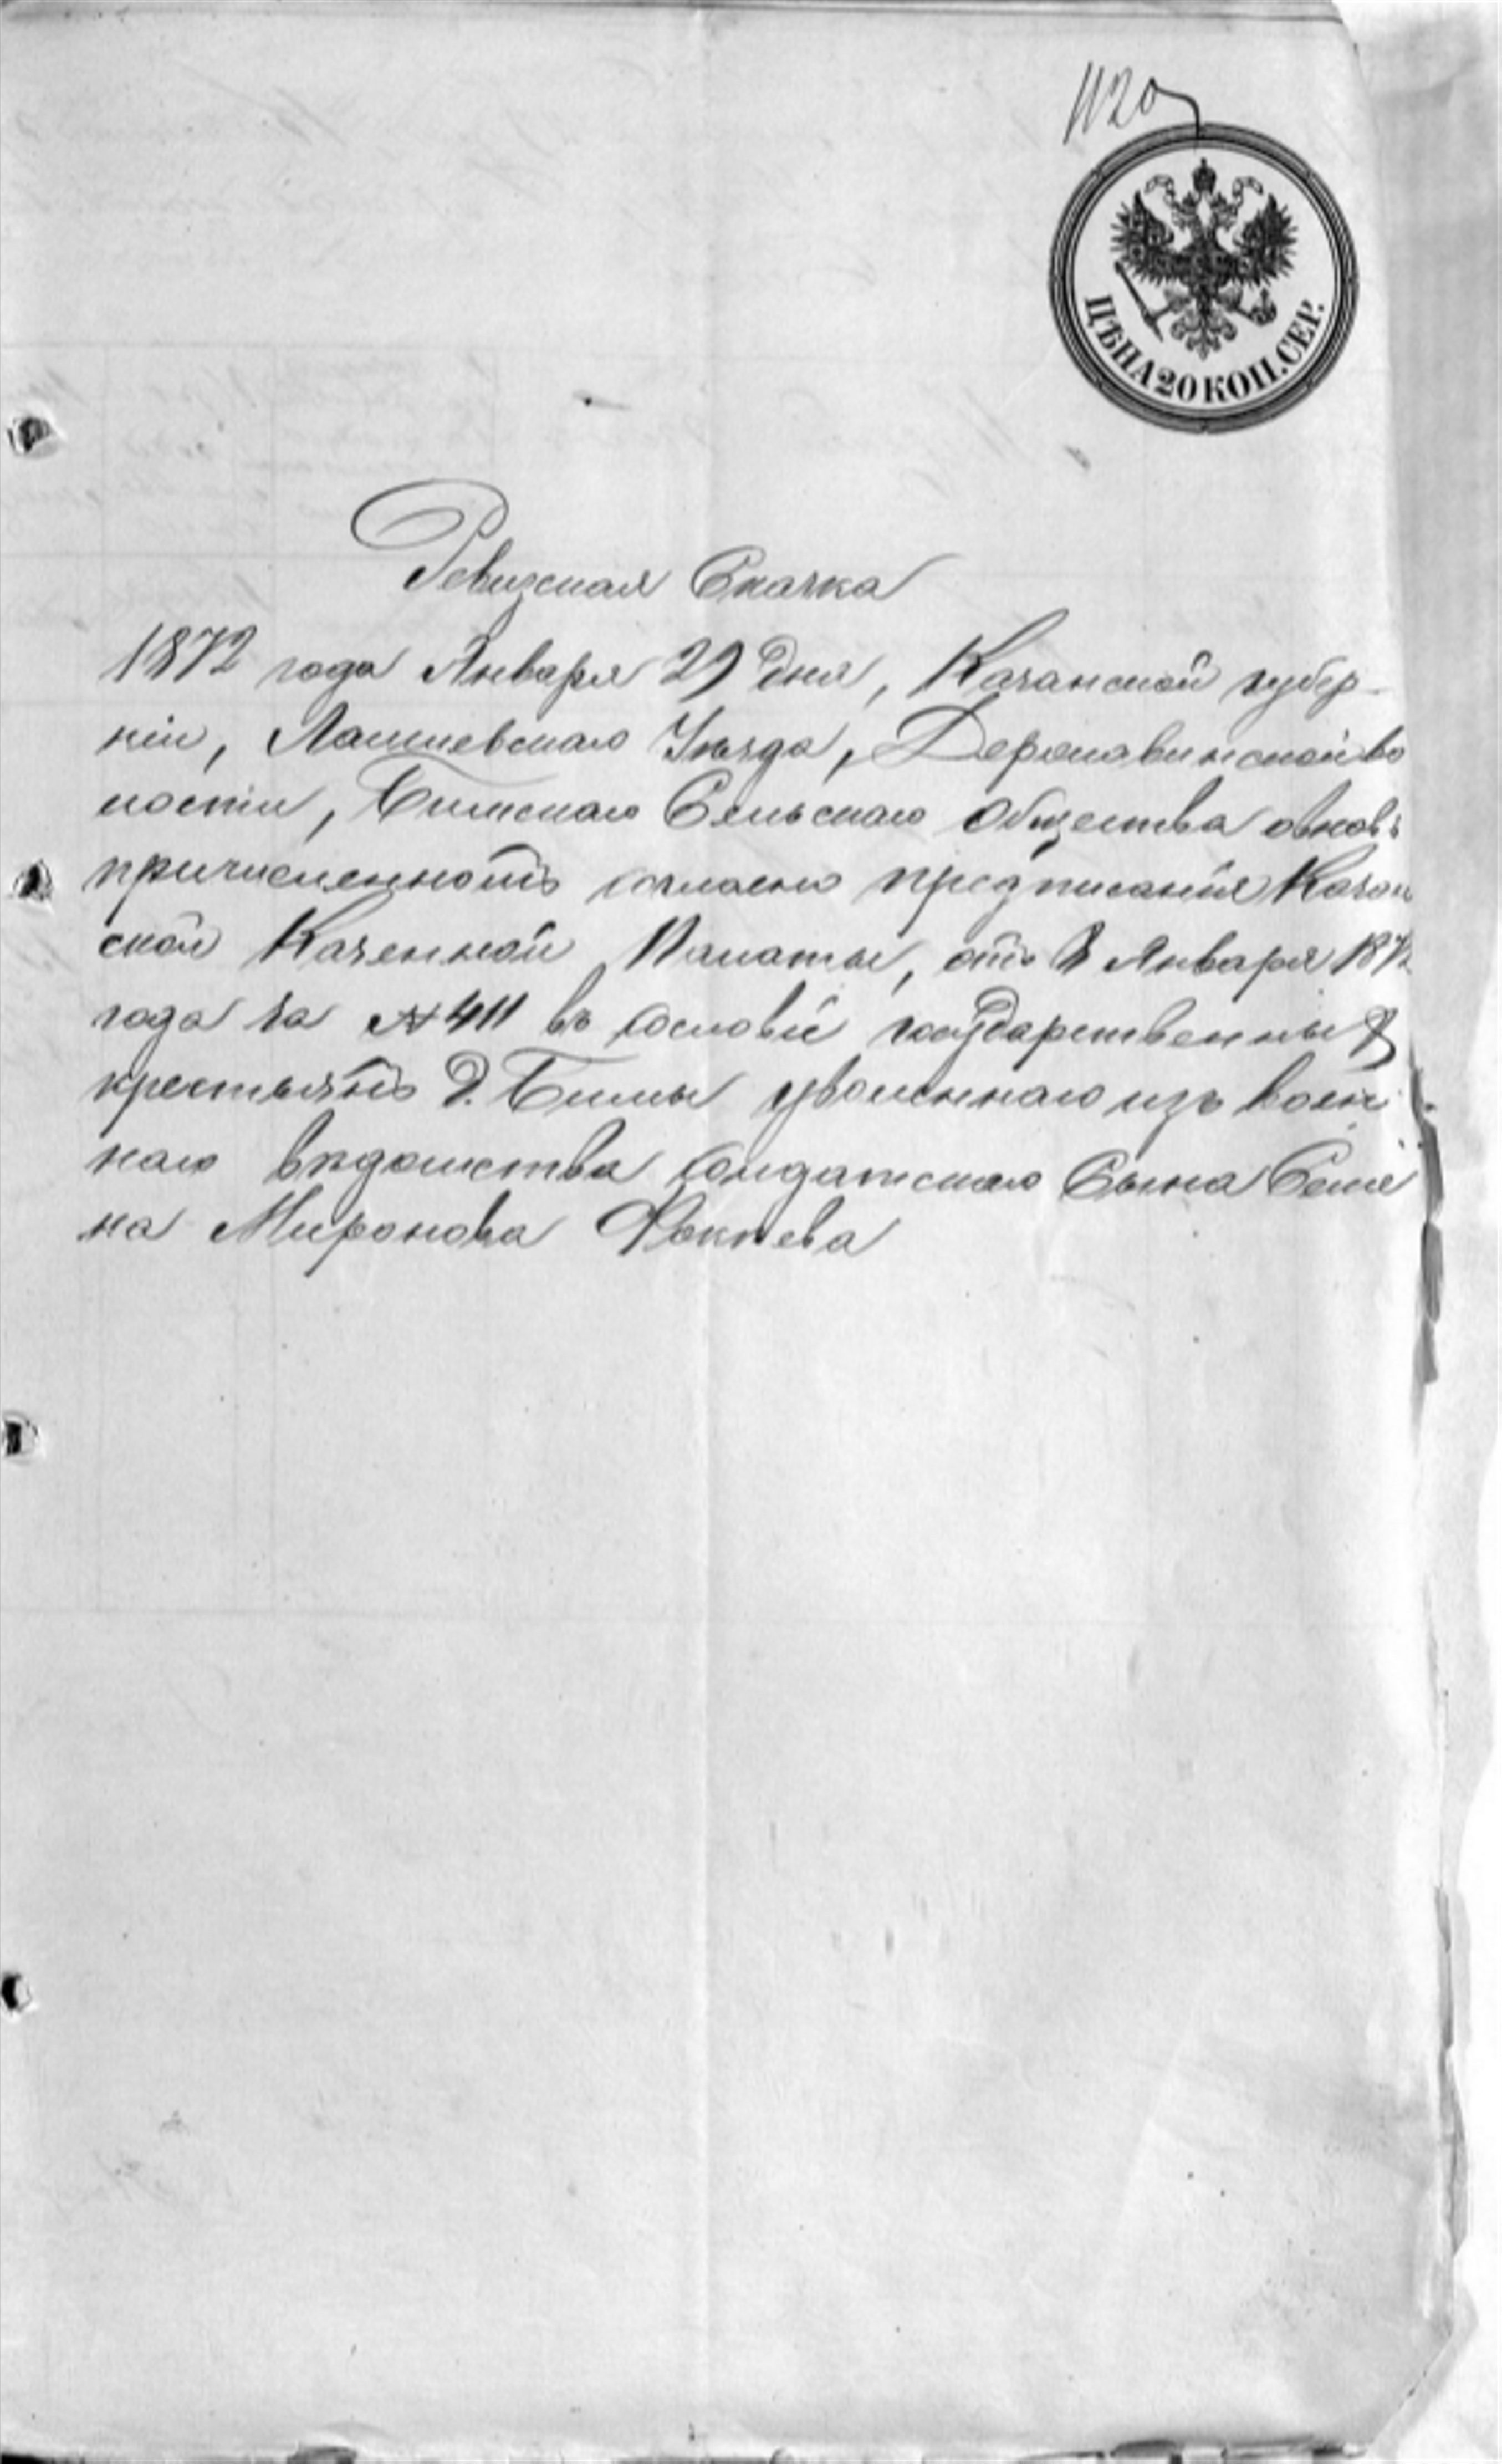 1120
ЦѢНА 20 КОП. СЕР.
Ревизская Сказка
1872 года Января 29 дня, Казанской губер-
ніи, Лаишевскаго Уѣзда, Державинской во
лости, Бимскаго Сельскаго Общества овновь
причисленномъ согласно предписанія Казан
ской Казенной Палаты, отъ 8 Января 1872
года за № 411 въ сословіе государственныхъ
крестьянъ д. Бимы уволеннаго изъ воен
наго вѣдомства солдатскаго Сына Семе
на Миронова Фокѣева